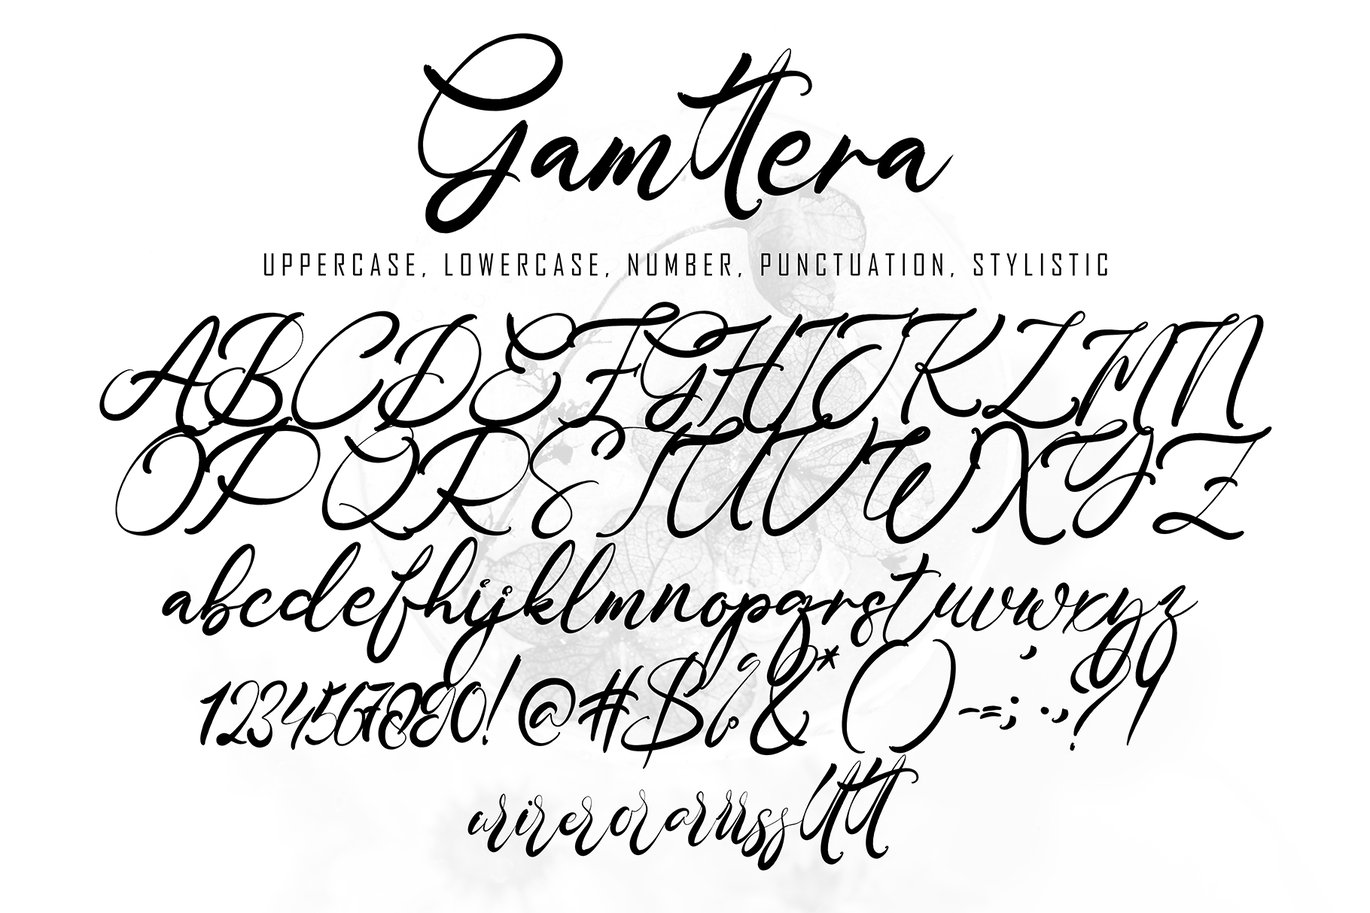 Gamttera
UPPERCASE, LOWERCASE, NUMBER, PUNCTUATION, STYLISTIC
ABCDEFGHIJKLMN
OPQRSTUVWXYZ
abcdefhijklmnopqrstuvwxyz
1234567890!@#$%&*()-=;:.,?/
urirerorarrrssltt